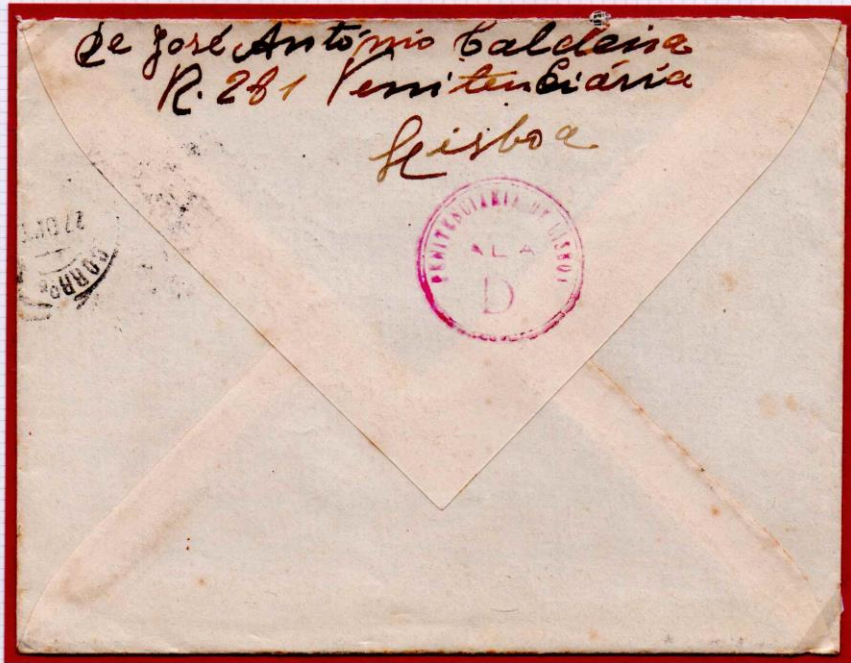 De José António Caldeira
R. 281 Penitenciária
Lisboa
PENITENCIARIA DE LISBOA
ALA
D
27
CORRE